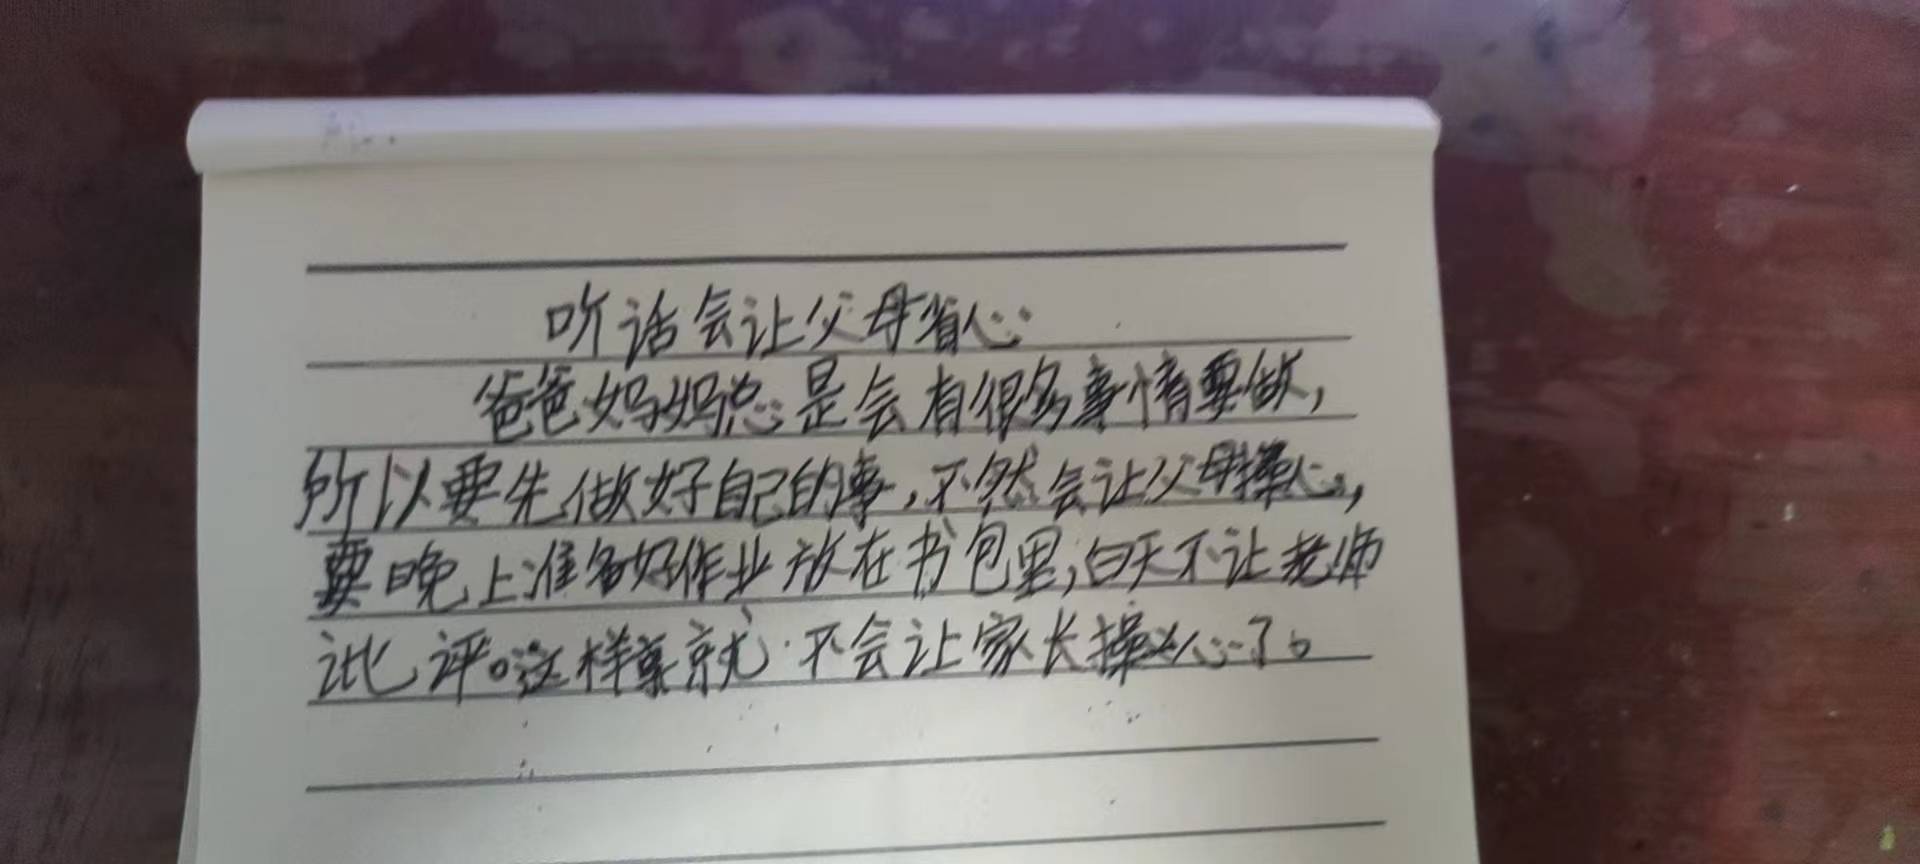 听话会让父母省心
爸爸妈妈总是会有很多事情要做，
所以要先做好自己的事，不然会让父母操心，
要晚上准备好作业放在书包里，白天不让老师
批评。这样就不会让家长操心了。